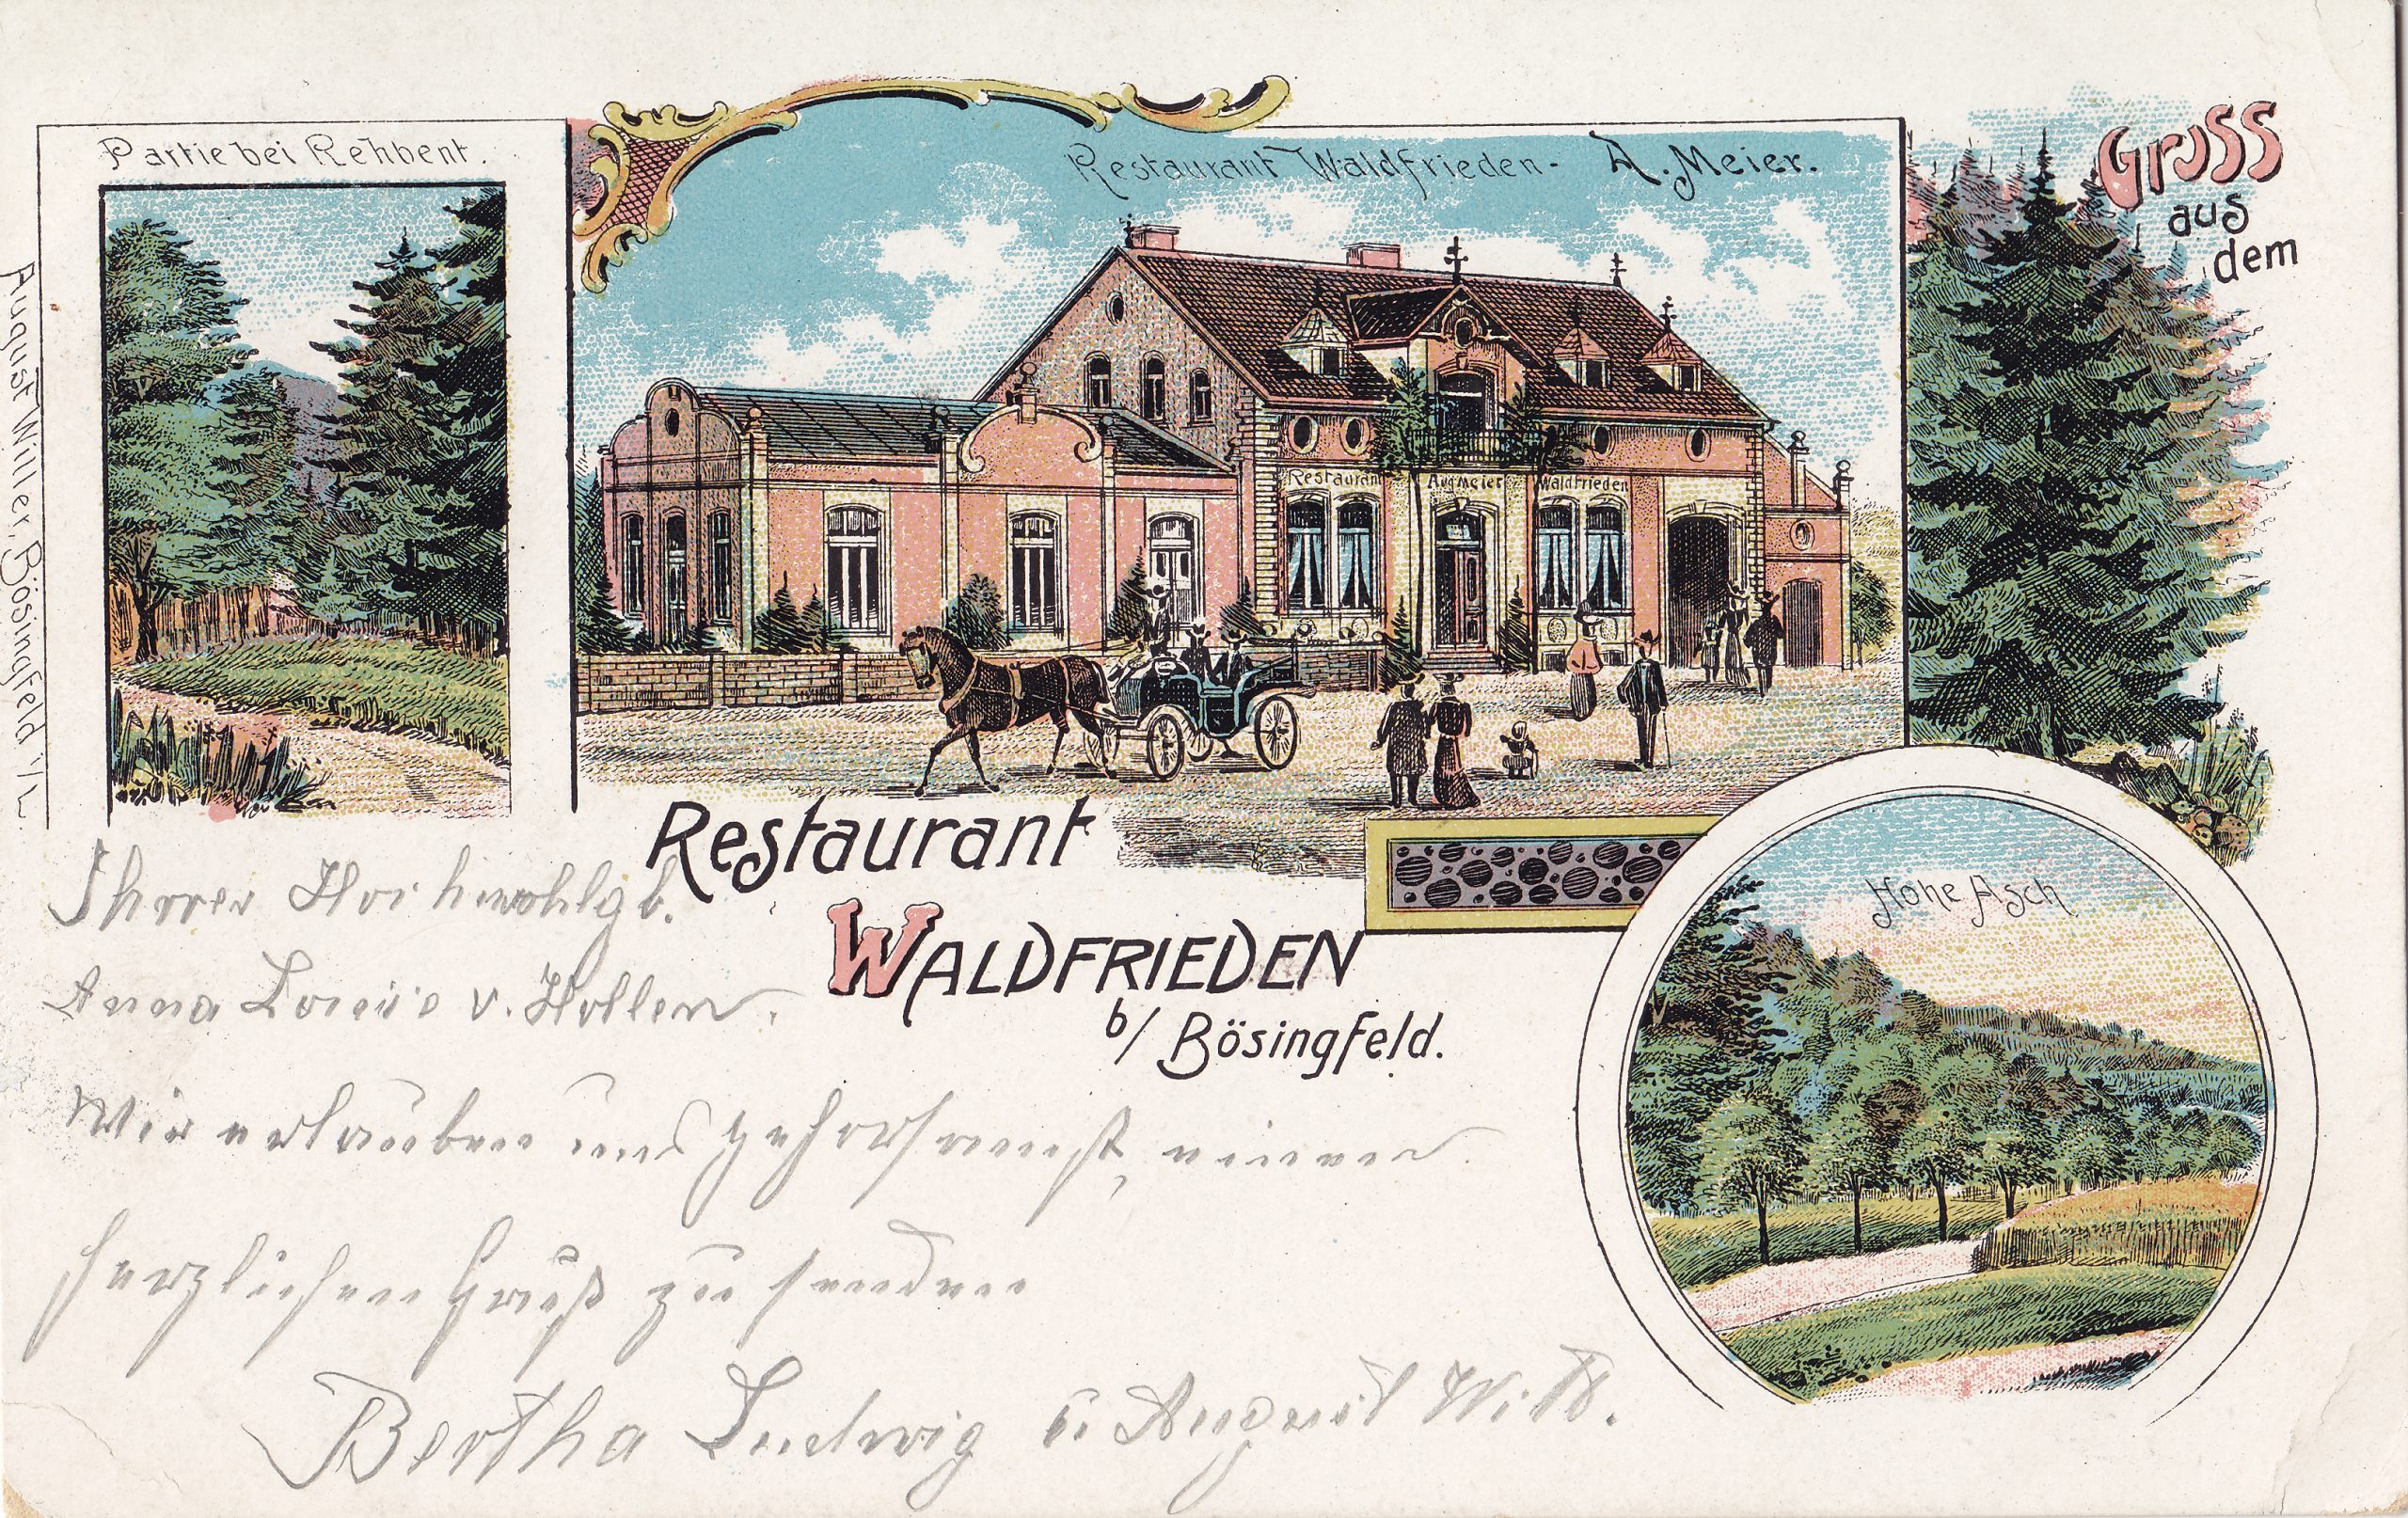 Partie bei Rehbent.
Restaurant Waldfrieden - A. Meier.
Gruss
aus
dem
Restaurant
Aug Meier
Waldfrieden
August Willer, Bösingfeld i/L.
Restaurant
WALDFRIEDEN
b/ Bösingfeld.
Hohe Asch
Ihrer Hochwohlgb.
Anna v. Hollen.
Wir erlauben uns gehorsamst, einen
herzlichen Gruß zu senden
Bertha Ludwig u August Witt.